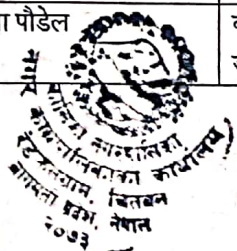 ा पौडेल
कालिका नगरपालिका
नगर कार्यपालिकाको कार्यालय
चितवन
बागमती प्रदेश, नेपाल
२०७३